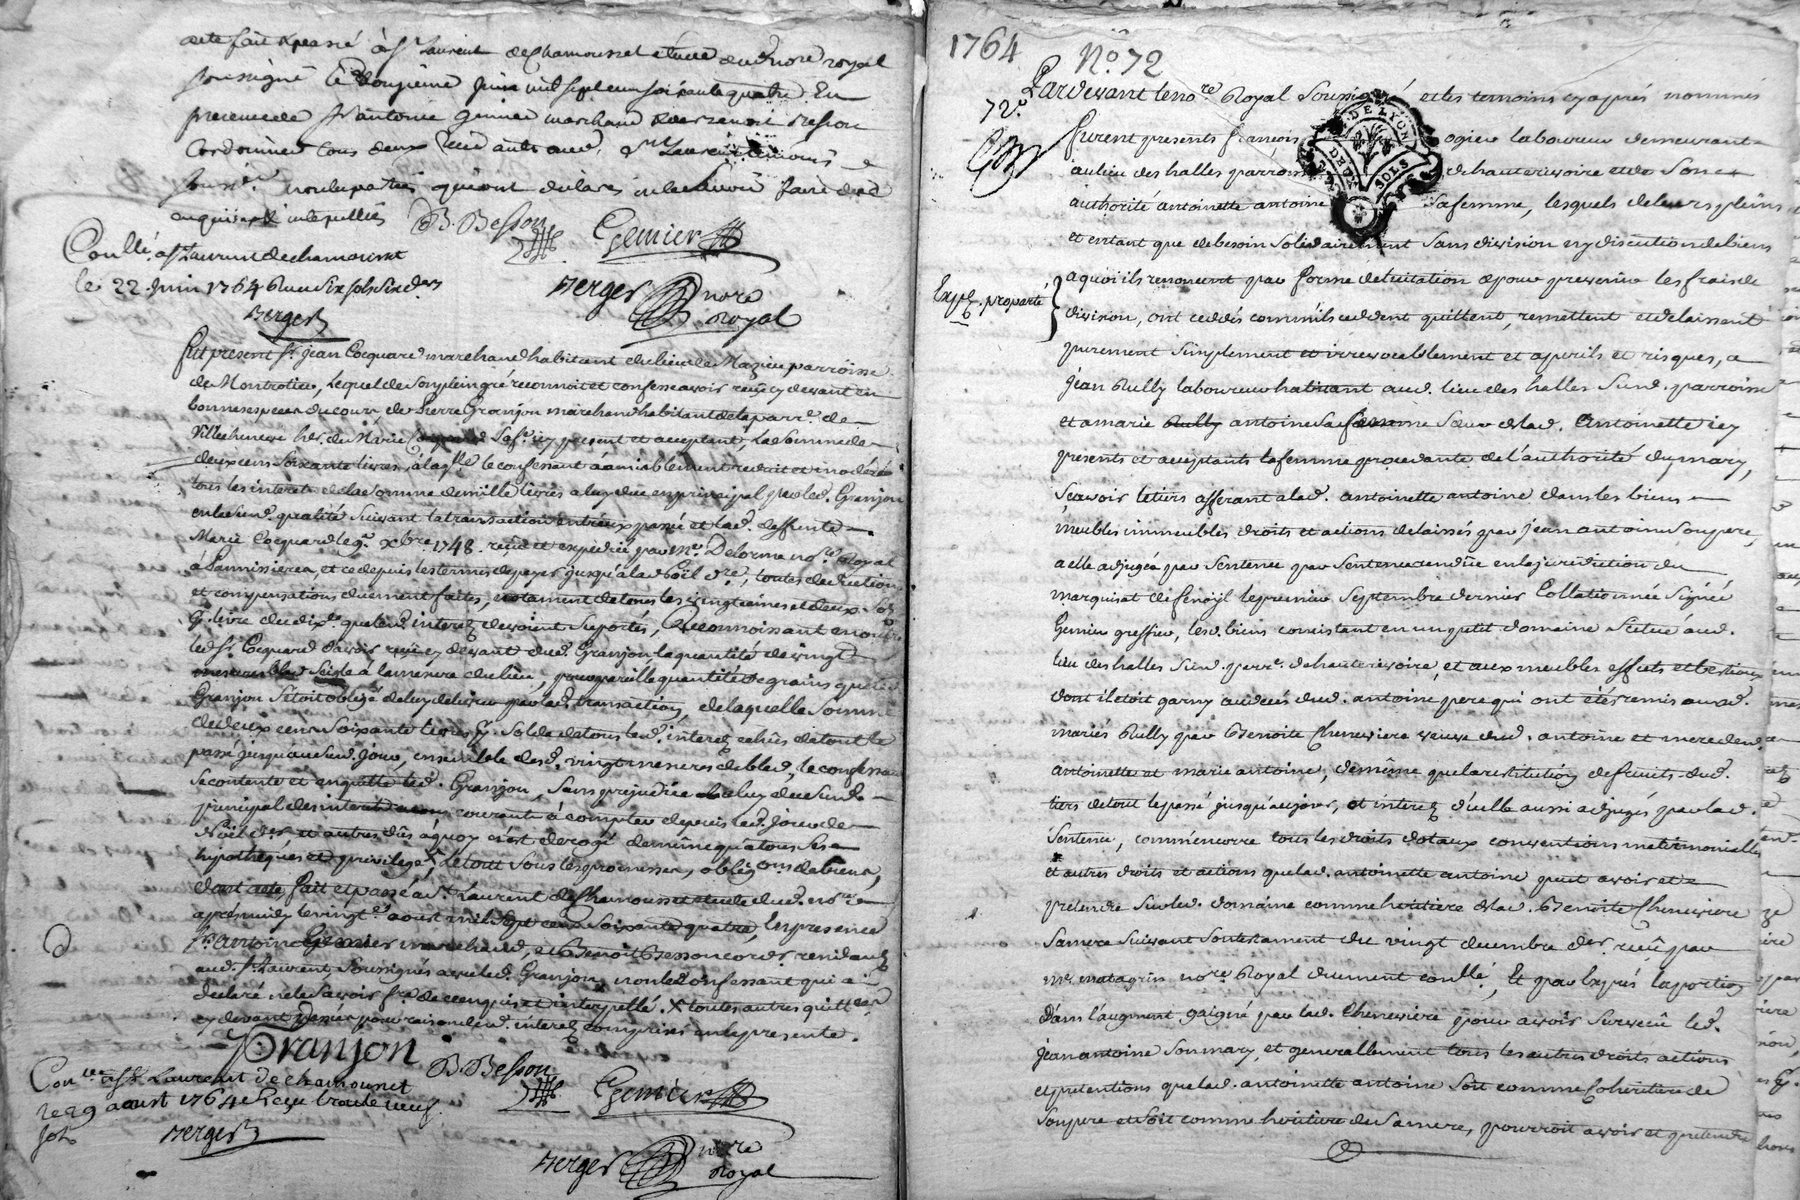 acte fait & passé à St Laurent de Chamousset étude dud. nore royal
soussigné le douzieme juin mil sept cen soixante quatre En
presence de Sr antoine Gemier marchand & de benoit Besson
Cordonnier tous deux aud. St Laurent témoins
soussés non les parties qui ont declaré ne le savoir faire de ce
enquises & interpellées
B. Besson Gemier
Con.llé à St Laurent de chamousset
le 22 Juin 1764 Reçu six sols six drs
Berger
Berger nore Royal
Fut present Sr. jean Cocquard marchand habitant du lieu de parroisse
de Montrotier, Lequel de son plein gré reconnoit et confesse avoir reçu cy devant en
bonnes especes du cours de Pierre Granjon marchand habitant de la parr.e de
Villecheneve her. de Marie sa fe. icy present et acceptant, La somme de
deux cens soixante livres, à laq.lle le confessant à amiablement reduit et modéré
tous les interets de la somme de mille livres a luy due en principal par led. Granjon
en la sud. qualité suivant la transaction entr'eux passé et lad. deffunte
Marie Cocquard le 9e. xbre. 1748. reçue et expediée par me. Delorme nore. Royal
à Pannissieres, et ce depuis les termes de payer jusqu'à la Noël dre, toutes deductions
et compensations duement faites, notament de tous les vingtiemes et deux sols
pr. livre du dixe. que led. interez devoient suportés, Reconnoissant en outre
led. Sr. Cocquard d'avoir reçu cy devant dud. Granjon la quantité de vingt
mesures bled seigle à la mesure du lieu, pour pareille quantité de grains que led.
Granjon s'etoit obligé de luy delivrer par lad. transaction, de laquelle somme
de deux cens soixante livres pr. solde de tous led. interez echus de tout le
passé jusqu'au sud. jour, ensemble desd. vingt mesures de bled, le confessant
se contente et en quitte led. Granjon, sans prejudice de luy du sud.
principal des interets courants à compter depuis led. jour de
Noël der. et autres dûs à quoy n'est derogé de même qu'à tous ses
hypotheques et privilege, X Le tout sous les promesses, oblig.ons de biens,
dont acte, fait et passé à St. Laurent de Chamousset etude dud. nore.
après midy le vingt. aoust mil sept cens soixante quatre, En presence
Sr. Antoine Gemier marchand, et Benoit Besson cordr. residants
aud. St. Laurent, soussignés avec led. Granjon, non le confessant qui a
declaré ne le savoir fre. de ce enquis et interpellé. X toutes autres quittces
cy devant passées pour raison desd. interez comprises en la presente.
Granjon
B. Besson Gemier
Con.llé à St Laurent de chamousset
le 29 aoust 1764 Reçu trente neuf
sols Berger
Berger nore Royal
1764 No. 72
72e.
Pardevant le nore. Royal soussigné et les temoins cy après nommés
furent presents francois ogier laboureur demeurant
au lieu des halles parroisse de hauterivoire et de son
authorité antoinette antoine sa femme, lesquels de leurs pleins
et entant que de besoin solidairement sans division ny discution de biens
a quoi ils renoncent par forme de licitation & pour prevenir les frais de
Exp.é pr. parte
division, ont ceddés comm'ils ceddent quittent, remettent et delaissent
purement simplement et irrevocablement et à perils et risques, a
jean Rully laboureur habitant aud. lieu des halles susd. parroisse
et a marie Rully antoine sa femme sœur de lad. Antoinette icy
presents et acceptants la femme procedante de l'authorité du mary,
sçavoir le tiers afferant à lad. antoinette antoine dans les biens
meubles immeubles droits et actions delaissés par jean antoine son pere,
a elle adjugéa par sentence par sentence rendüe en la juridiction du
marquisat de fenoÿl le premier septembre dernier Collationnée signée
Gemier greffier, lesd. biens consistant en un petit domaine situé aud.
lieu des halles sud. parr. de hauterivoire, et aux meubles effets et bestiaux
dont il etoit garny au decès dud. antoine pere qui ont étés remis auxd.
mariés Rully par Benoite Cheneviere veuve dud. antoine et mere desd.
antoinette et marie antoine, de même que la restitution de fruits dud.
tiers de tout le passé jusqu'au jour, et interez d'icelle aussi adjugés par lad.
sentence, comm'encore tous les droits dotaux conventions matrimonielles
et autres droits et actions que lad. antoinette antoine peut avoir et
pretendre sur led. domaine comme heritiere de lad. Benoite Cheneviere
sa mere suivant son testament du vingt decembre der. reçu par
me. matagrin nore. Royal duement con.llé, Et par exprès la portion
dans l'augment gaigné par lad. Cheneviere pour avoir survecu led.
jean antoine son mary, et generallement tous les autres droits actions
et pretentions que lad. antoinette antoine soit comme Coheritiere de
son pere et soit comme heritiere de sa mere, pourroit avoir et pretendre